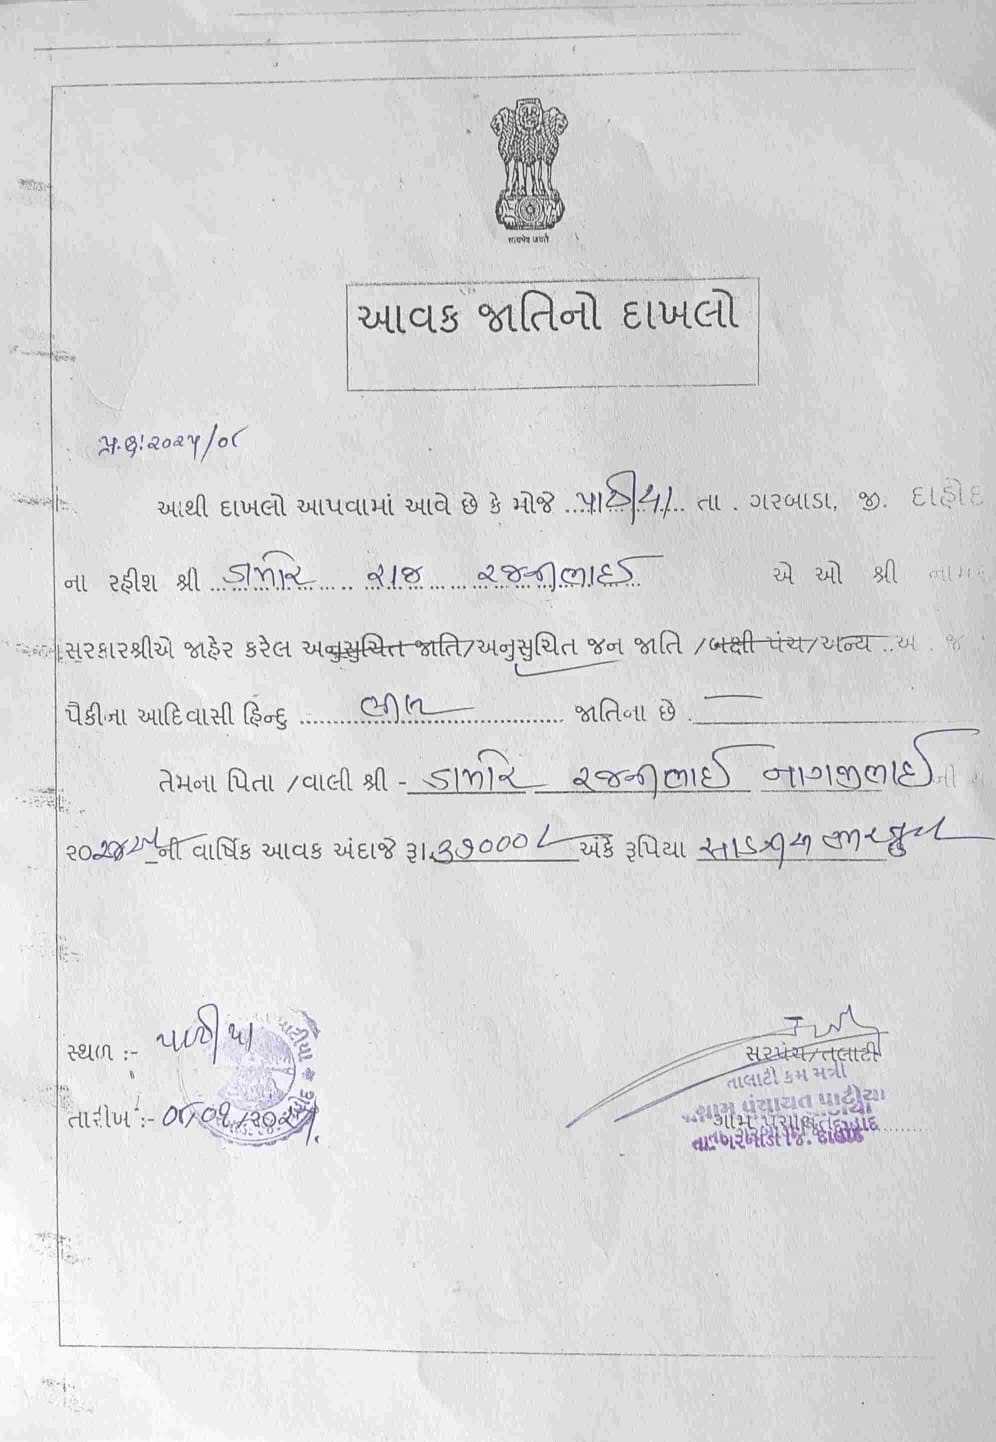 સત્યમેવ જયતે
આવક જાતિનો દાખલો
આથી દાખલો આપવામાં આવે છે કે મોજે પાટીયા તા. ગરબાડા, જી. દાહોદ
ના રહીશ શ્રી ડામોર રાજ રજનીભાઈ એ ઓ શ્રી નામદ
સરકારશ્રીએ જાહેર કરેલ અનુસુચિત જાતિ/અનુસુચિત જન જાતિ /બક્ષી પંચ/અન્ય અ . જ
પૈકીના આદિવાસી હિન્દુ ભીલ જાતિના છે .
તેમના પિતા /વાલી શ્રી - ડામોર રજનીભાઈ નાગજીભાઈ ની
ની વાર્ષિક આવક અંદાજે રૂા. 37000/- અંકે રૂપિયા સાડત્રીસ હજાર પુરા
સ્થળ :- પાટીયા
તારીખ :-
સરપંચ/તલાટી
તાલાટી કમ મંત્રી
ગ્રામ પંચાયત પાટીયા
તા. ગરબાડા જિ. દાહોદ